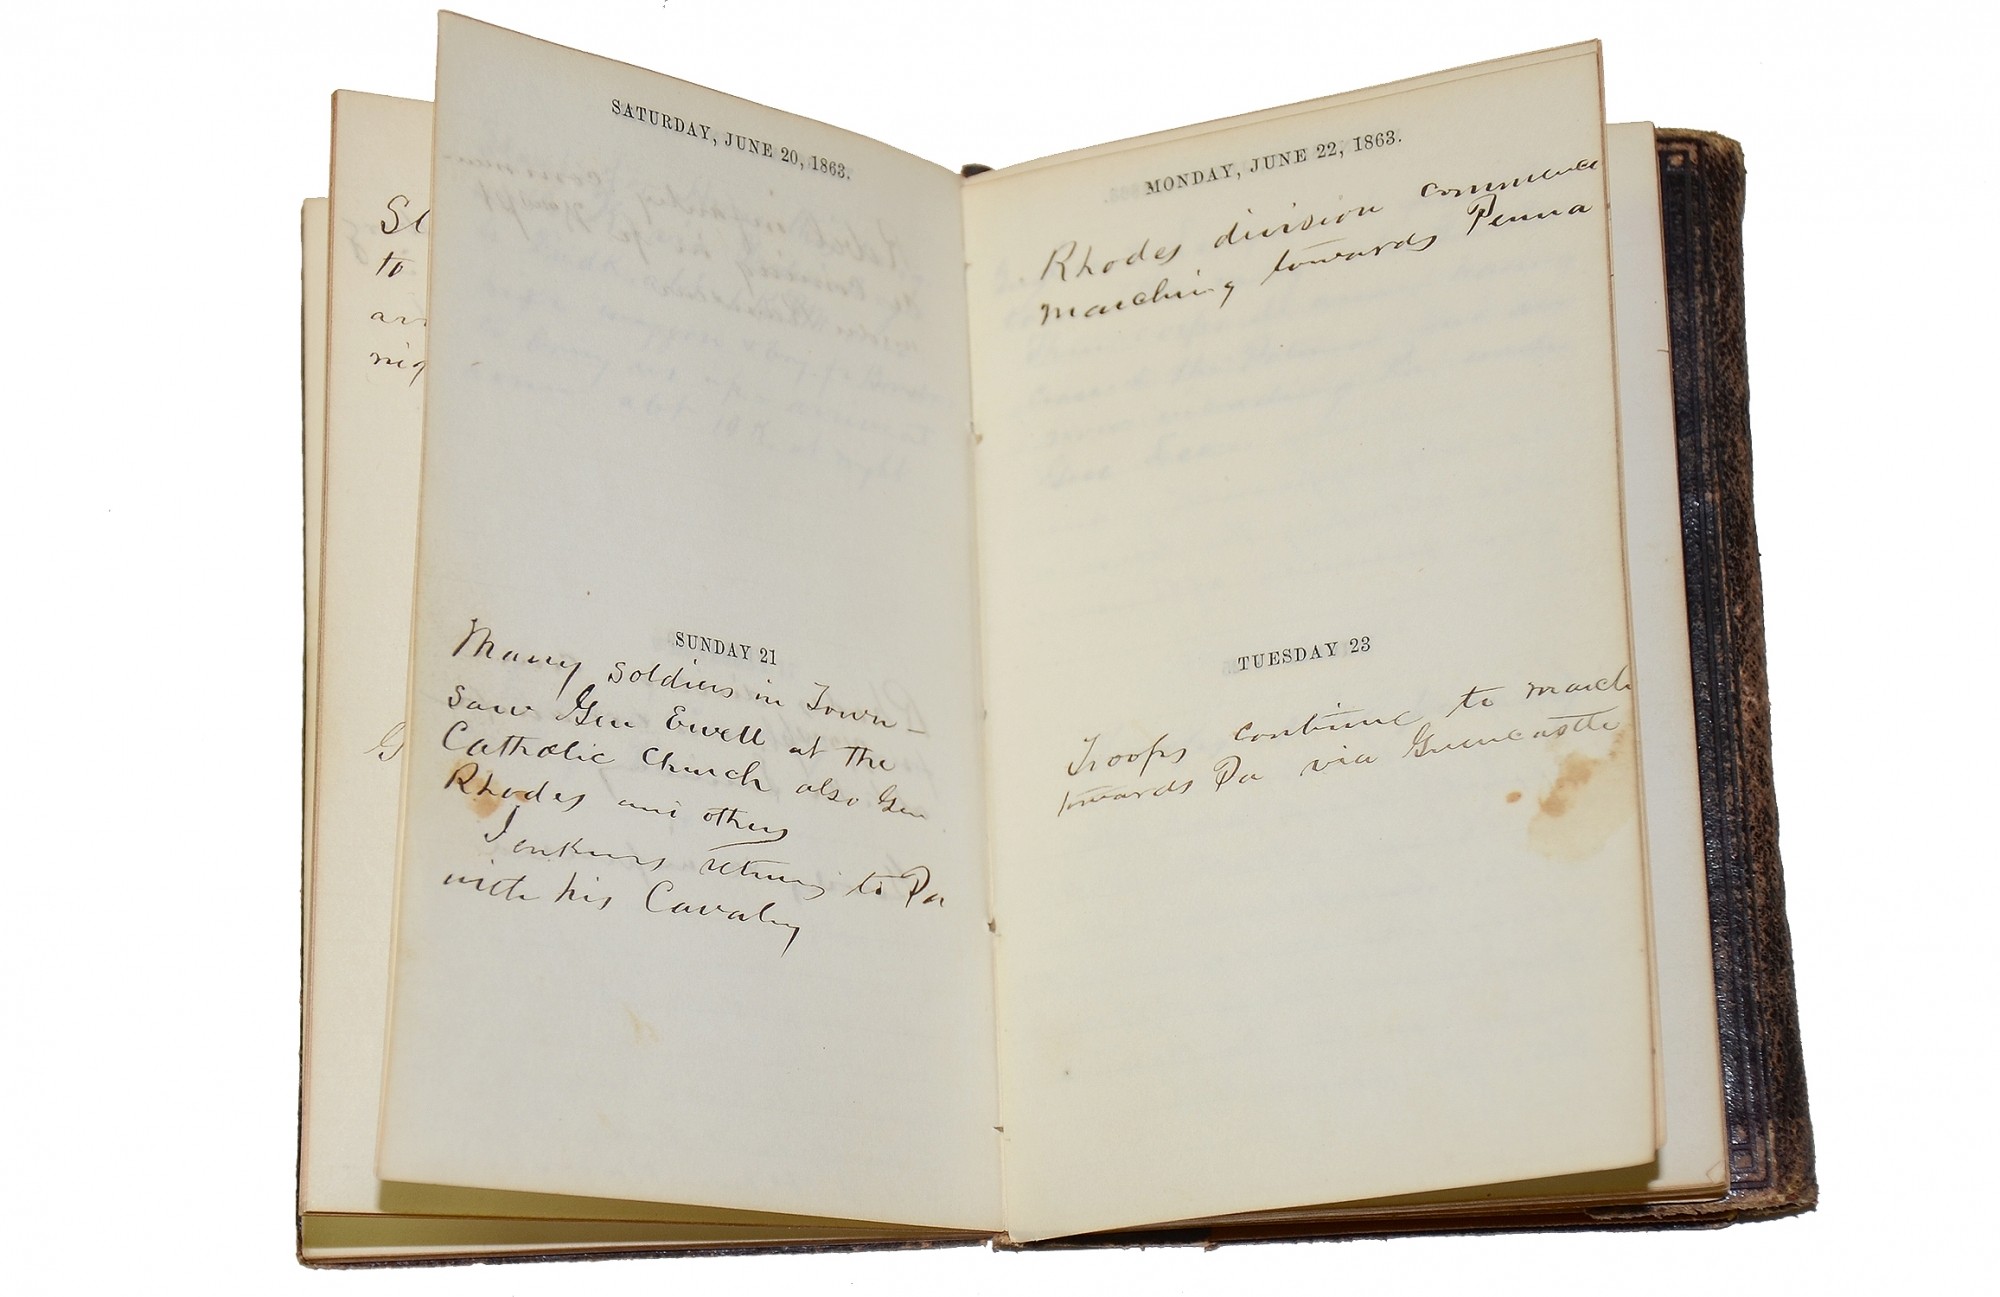 SATURDAY, JUNE 20, 1863.
SUNDAY 21
Many soldiers in Town -
saw Gen Ewell at the
Catholic Church also Gen
Rhodes and others
Jenkins returns to Pa
with his Cavalry
MONDAY, JUNE 22, 1863.
Rhodes division commence
marching towards Penna
TUESDAY 23
Troops continue to march
towards Pa via Greencastle
to